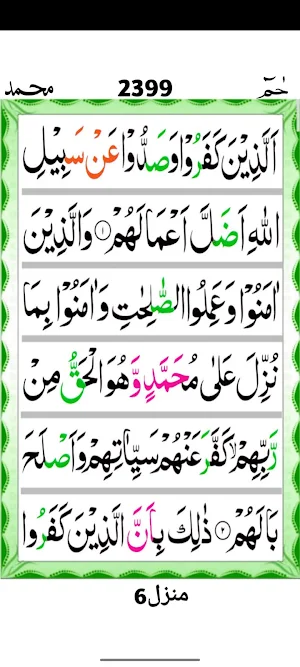 حٰمٓ 2399 محمد
اَلَّذِيْنَ كَفَرُوْا وَصَدُّوْا عَنْ سَبِيْلِ
اللّٰهِ اَضَلَّ اَعْمَالَهُمْ ۝۱ وَالَّذِيْنَ
اٰمَنُوْا وَعَمِلُوا الصّٰلِحٰتِ وَاٰمَنُوْا بِمَا
نُزِّلَ عَلٰى مُحَمَّدٍ وَّهُوَ الْحَقُّ مِنْ
رَّبِّهِمْ ۙ كَفَّرَ عَنْهُمْ سَيِّاٰتِهِمْ وَاَصْلَحَ
بَالَهُمْ ۝۲ ذٰلِكَ بِاَنَّ الَّذِيْنَ كَفَرُوا
منزل6